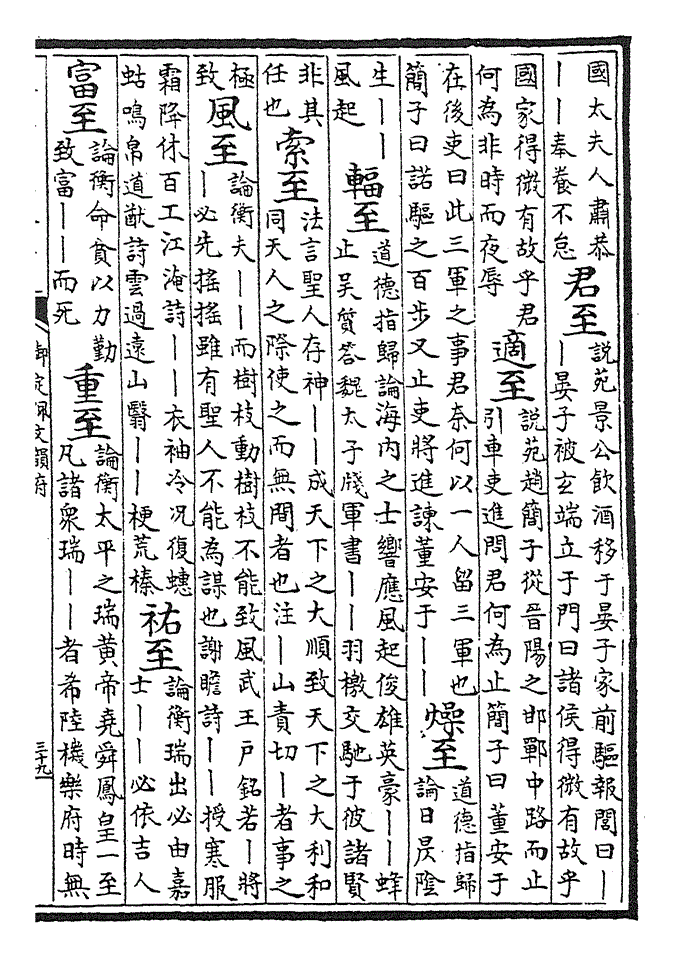 國太夫人肅恭
｜｜奉養不怠
君至
說苑景公飲酒移于晏子家前驅報閭曰｜
｜晏子被玄端立于門曰諸侯得微有故乎
國家得微有故乎君
何為非時而夜辱
適至
說苑趙簡子從晉陽之邯鄲中路而止
引車吏進問君何為止簡子曰董安于
在後吏曰此三軍之事君奈何以一人留三軍也
簡子曰諾驅之百步又止吏將進諫董安于｜｜
燥至
道德指歸
論日昃陰
生｜｜
風起
輻至
道德指歸論海内之士響應風起俊雄英豪｜｜蜂
止吳質答魏太子牋軍書｜｜羽檄交馳于彼諸賢
非其
任也
索至
法言聖人存神｜｜成天下之大順致天下之大利和
同天人之際使之而無間者也注｜山責切｜者事之
極
致
風至
論衡夫｜｜而樹枝動樹枝不能致風武王戶銘若｜將
｜必先搖搖雖有聖人不能為謀也謝瞻詩｜｜授寒服
霜降休百工江淹詩｜｜衣袖冷况復蟪
蛄鳴帛道猷詩雲過遠山翳｜｜梗荒榛
祐至
論衡瑞出必由嘉
士｜｜必依吉人
富至
論衡命貧以力勤
致富｜｜而死
重至
論衡太平之瑞黄帝堯舜鳳皇一至
凡諸衆瑞｜｜者希陸機樂府時無
御定佩文韻府
三十九